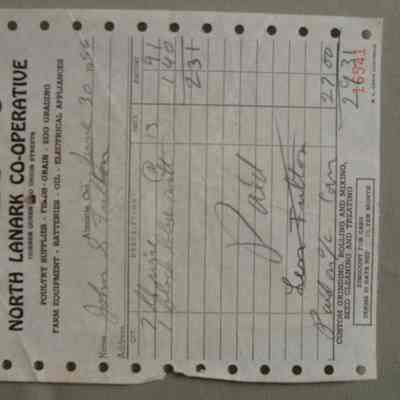 NORTH LANARK CO-OPERATIVE
CORNER QUEEN AND UNION STREETS
POULTRY SUPPLIES - FEEDS - GRAIN - EGG GRADING
FARM EQUIPMENT - BATTERIES - OIL - ELECTRICAL APPLIANCES
Almonte, Ont. June 30 1956
Name John S Fulton
Address
QT. DESCRIPTION PRICE AMOUNT
7 13 91
1 salt 1 40
2 31
Paid
Leon Fulton
Paid on a/c 27 00
CUSTOM GRINDING, ROLLING AND MIXING,
SEED CLEANING AND TREATING
29 31
DISCOUNT FOR CASH
TERMS 30 DAYS NET PER MONTH
16941